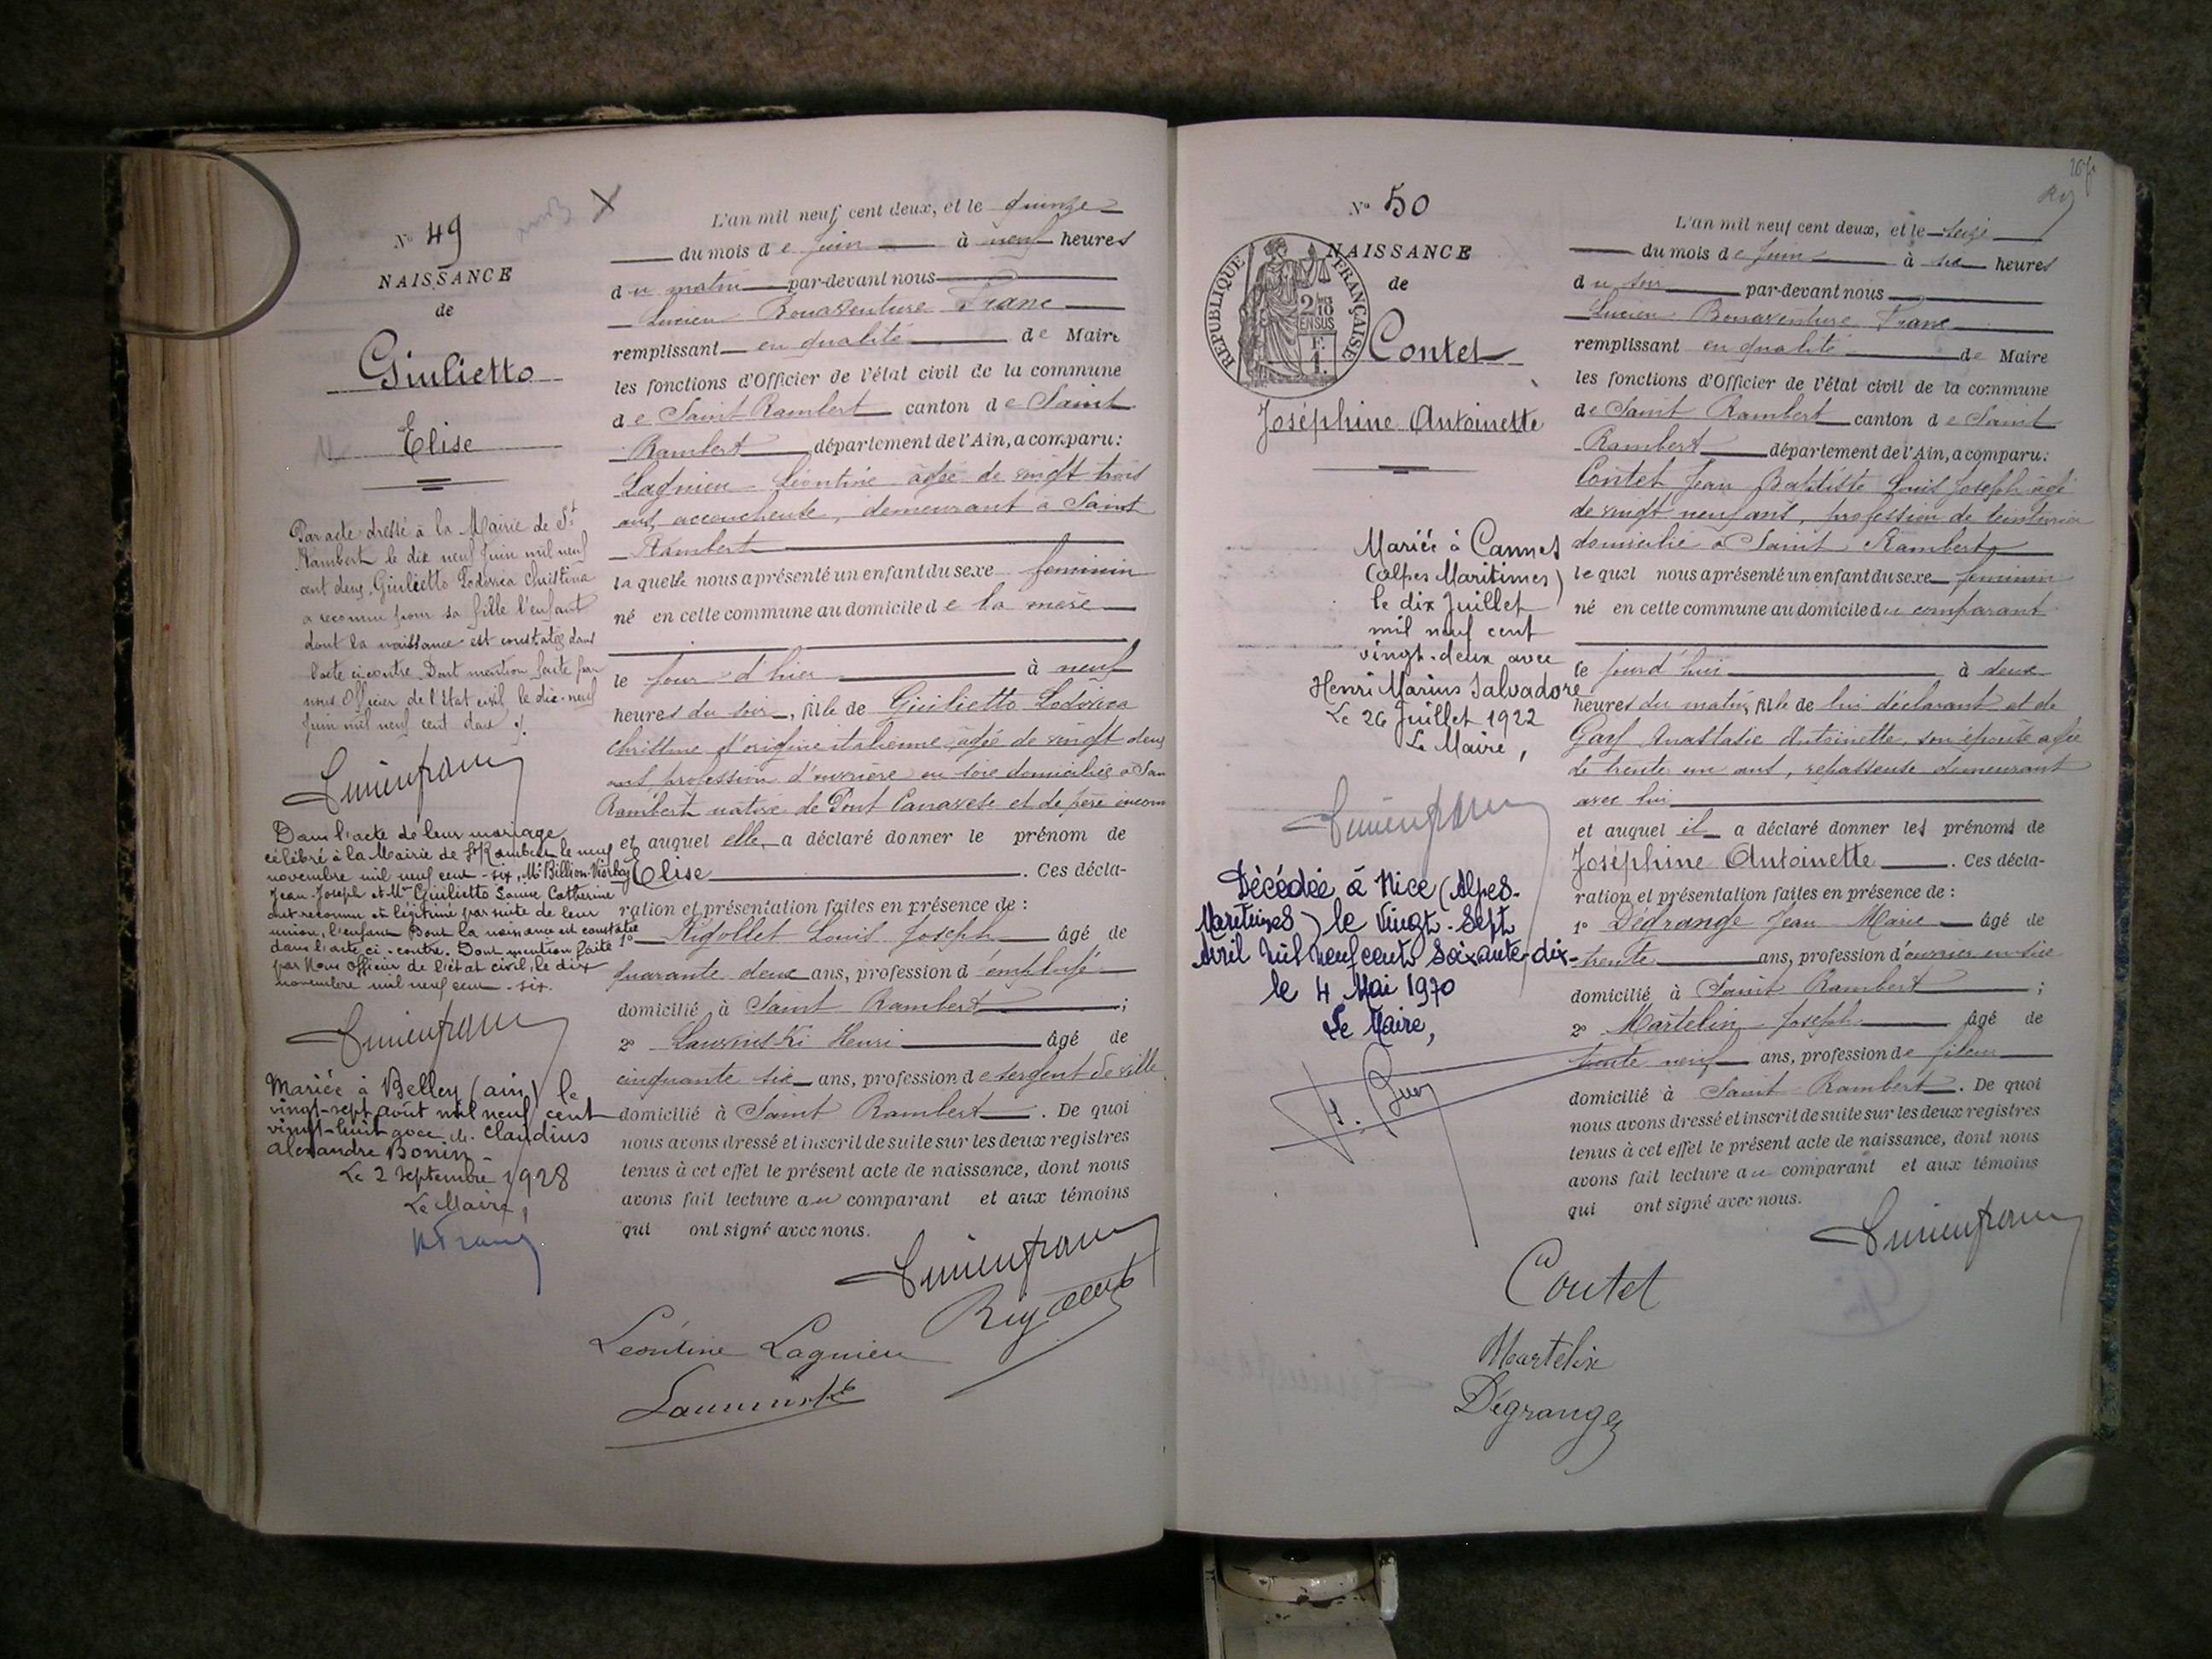 N° 49
NAISSANCE
de
Giulietto
Elise
Par acte dressé à la Mairie de St
Rambert le dix neuf Juin mil neuf
cent deux, Giulietto Lodovica Christina
a reconnu pour sa fille l'enfant
dont la naissance est constatée dans
l'acte ci contre. Dont mention faite par
nous Officier de l'Etat civil, le dix-neuf
Juin mil neuf cent deux
Lucien franc
Dans l'acte de leur mariage
célébré à la Mairie de St Rambert le neuf
novembre mil neuf cent-six, Mr Billion
Jean-Joseph et Mlle Giulietto Louise Catherine
ont reconnu et légitimé par suite de leur
union, l'enfant Dont la naissance est constatée
dans l'acte ci-contre. Dont mention faite
par Nous Officier de l'état civil, le dix
novembre mil neuf cent-six.
Lucien franc
Mariée à Belley (ain) le
vingt-sept août mil neuf cent
vingt-huit avec M. Claudius
Alexandre Bonin -
Le 2 Septembre 1928
Le Maire,
L'an mil neuf cent deux, et le quinze
du mois de Juin à neuf heures
du matin par-devant nous
Lucien Bonaventure Franc
remplissant en qualité de Maire
les fonctions d'Officier de l'état civil de la commune
de Saint Rambert canton de Saint
Rambert département de l'Ain, a comparu :
Lagnieu Léontine âgée de vingt trois
ans, accoucheuse, demeurant à Saint
Rambert
laquelle nous a présenté un enfant du sexe feminin
né en cette commune au domicile de la mère
le jour d'hier à neuf
heures du soir, fille de Giulietto Lodovica
Christine d'origine italienne âgée de vingt deux
ans profession d'ouvrière en soie domiciliée à San
Rambert native de Pont Canavese et de père incon
et auquel elle a déclaré donner le prénom de
Elise. Ces décla-
ration et présentation faites en présence de :
1° Rigollet Louis Joseph âgé de
quarante deux ans, profession d'employé
domicilié à Saint Rambert ;
2° Lawinski Henri âgé de
cinquante six ans, profession de sergent de ville
domicilié à Saint Rambert. De quoi
nous avons dressé et inscrit de suite sur les deux registres
tenus à cet effet le présent acte de naissance, dont nous
avons fait lecture au comparant et aux témoins
qui ont signé avec nous.
Lucien franc
Léontine Lagnieu
N° 50
NAISSANCE
de
RÉPUBLIQUE FRANÇAISE
2/10
EN SUS
F.
1.
Contet
Joséphine Antoinette
Mariée à Cannes
(Alpes Maritimes)
le dix Juillet
mil neuf cent
vingt-deux avec
Henri Marius Salvadore
Le 26 Juillet 1922
Le Maire,
Lucien franc
Décédée à Nice (Alpes-
Maritimes) le Vingt-Sept
Avril Mil Neuf cent Soixante-dix-
le 4 Mai 1970
Le Maire,
L'an mil neuf cent deux, et le seize
du mois de Juin à six heures
du soir par-devant nous
Lucien Bonaventure Franc
remplissant en qualité de Maire
les fonctions d'Officier de l'état civil de la commune
de Saint Rambert canton de Saint
Rambert département de l'Ain, a comparu :
Contet Jean Baptiste Louis Joseph âgé
de vingt neuf ans, profession de teinturier
domicilié à Saint Rambert
lequel nous a présenté un enfant du sexe feminin
né en cette commune au domicile du comparant
le jour d'hier à deux
heures du matin, fille de lui déclarant et de
Anastasie Antoinette, son épouse agée
de trente un ans, repasseuse demeurant
avec lui
et auquel il a déclaré donner les prénoms de
Joséphine Antoinette. Ces décla-
ration et présentation faites en présence de :
1° Dégrange Jean Marie âgé de
trente ans, profession d'ouvrier en soie
domicilié à Saint Rambert ;
2° Martelin Joseph âgé de
trente neuf ans, profession de fileur
domicilié à Saint Rambert. De quoi
nous avons dressé et inscrit de suite sur les deux registres
tenus à cet effet le présent acte de naissance, dont nous
avons fait lecture au comparant et aux témoins
qui ont signé avec nous.
Lucien franc
Contet
Martelin
Dégrange